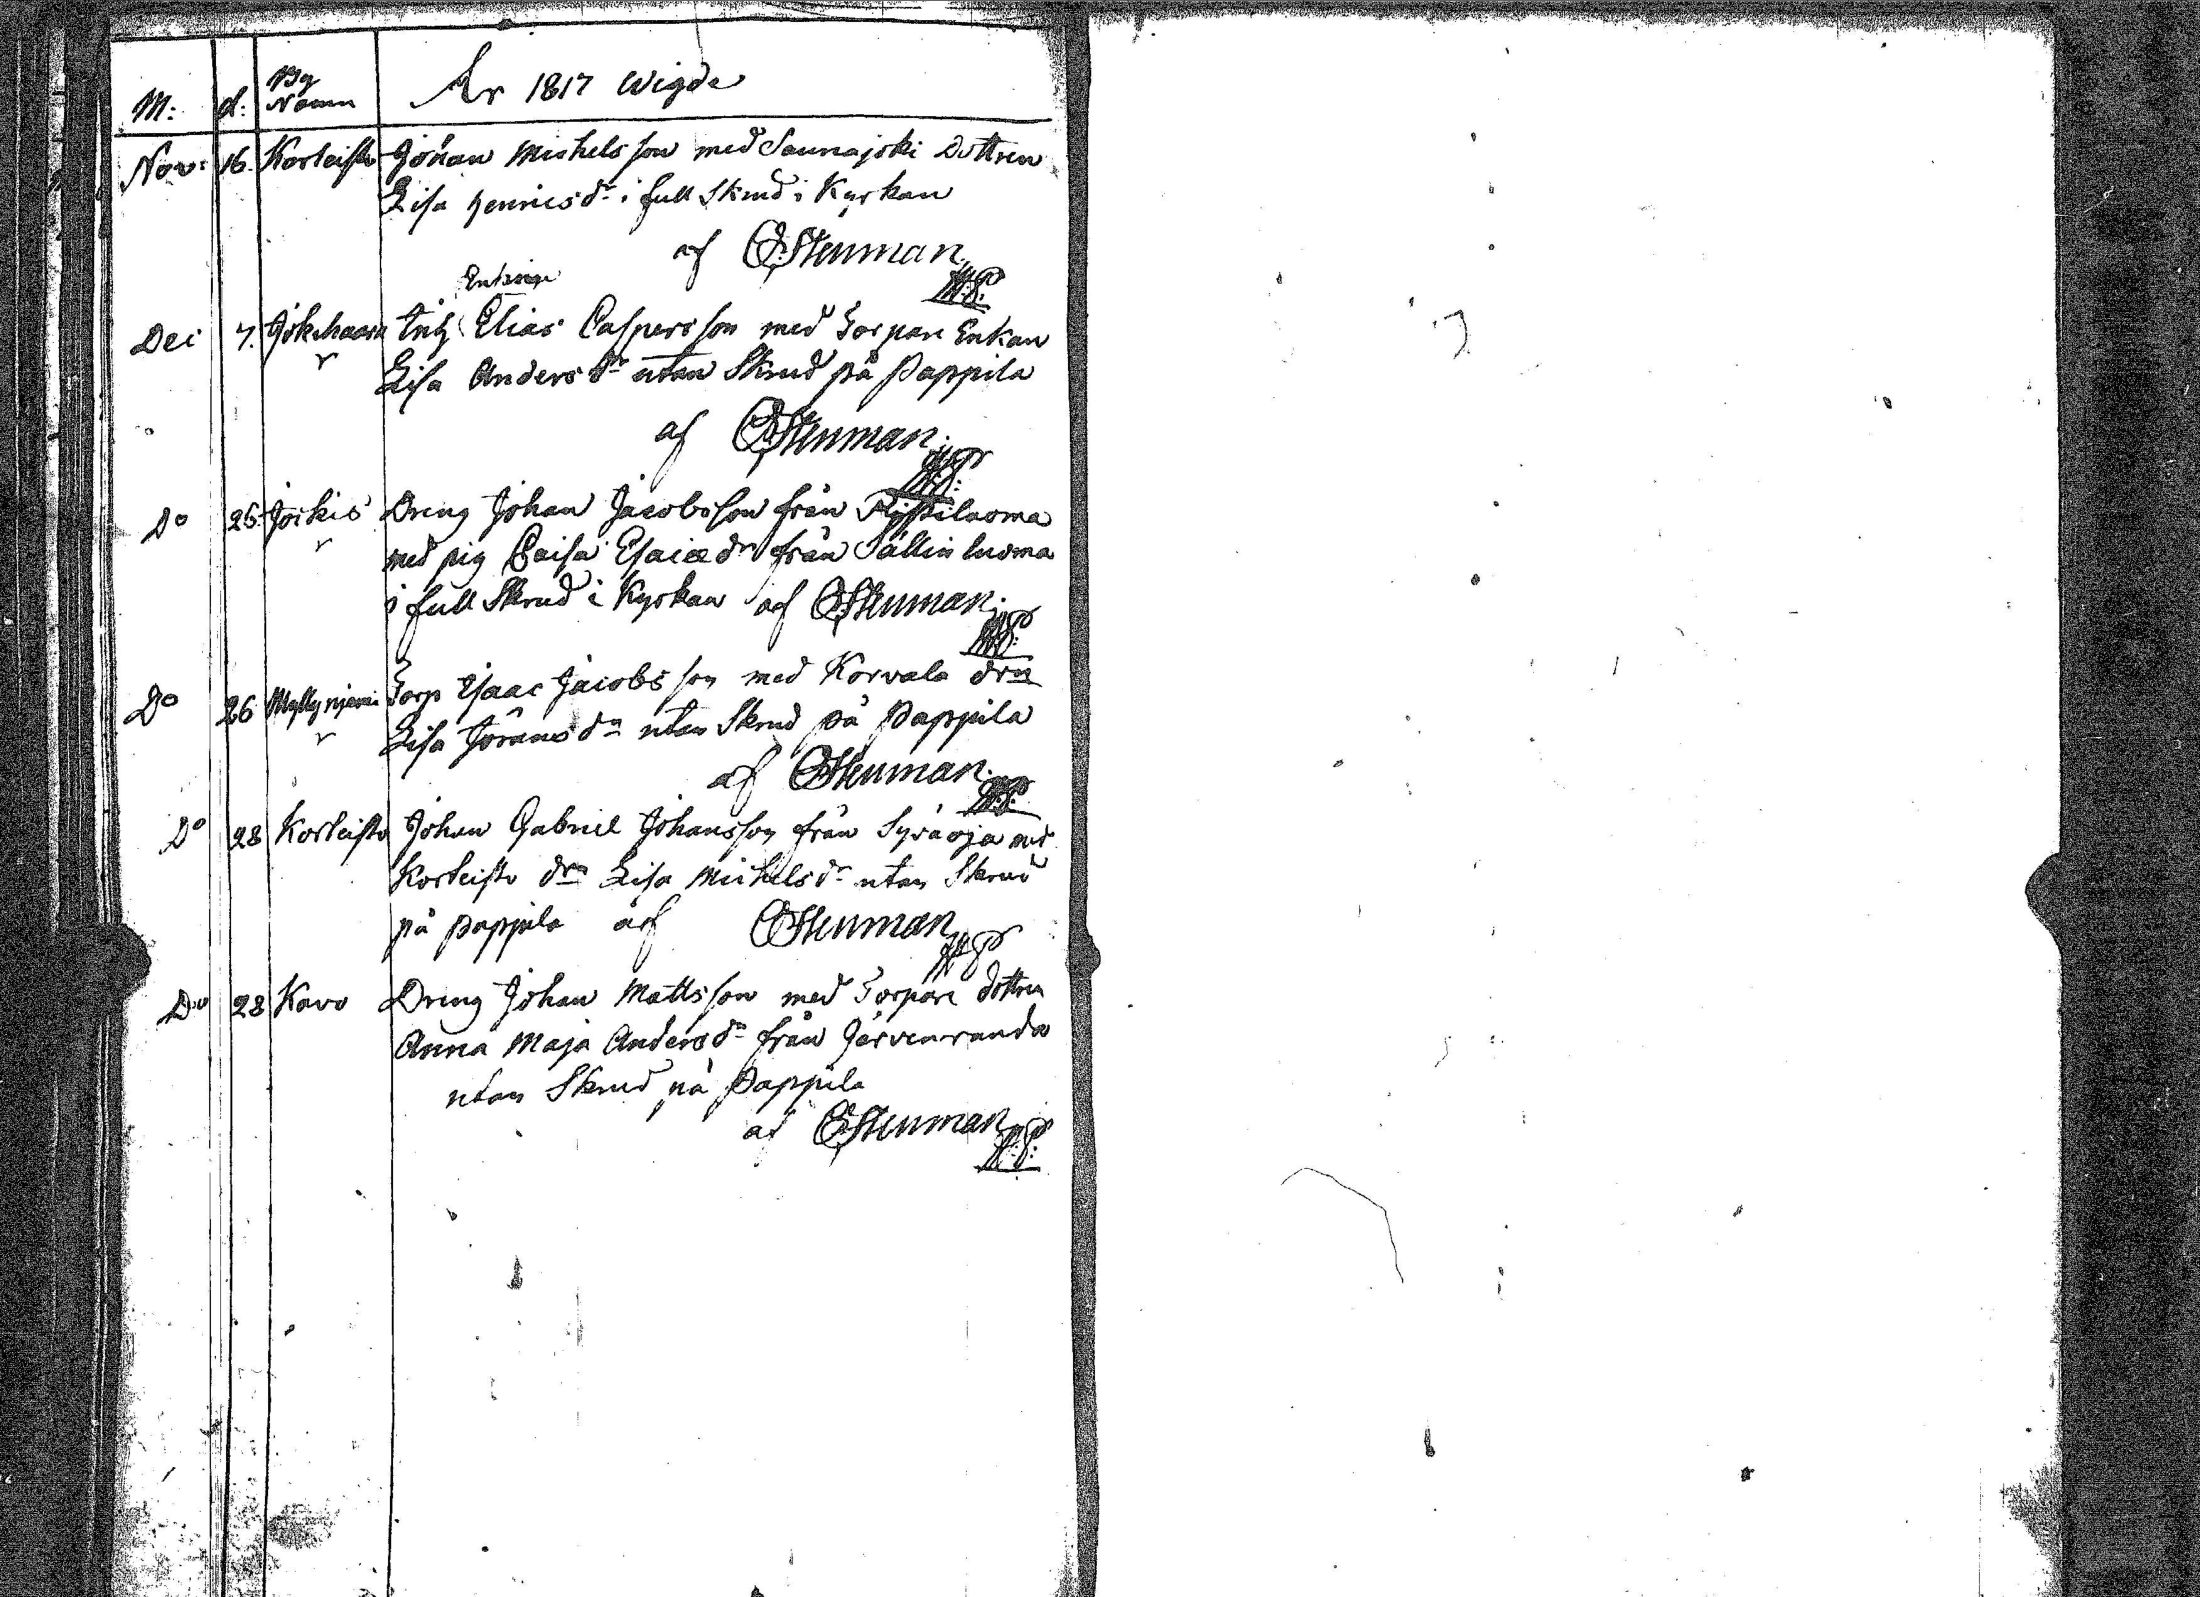 M: d: By Namn År 1817 Wigde
Nov: 16. Korteisto Johan Michelsson med Saunajoki Dottren
Lisa Henricsdr i full Skrud i Kyrkan
af Stenman
Enkling
Dec 7. Jokihaara Elias Caspersson med Torpare Enkan
Lisa Andersdr utan Skrud på Pappila
af Stenman.
Do 25 Joikis Dreng Johan Jacobsson från
med pig Caisa Esaiædr från Sällin luoma
i full Skrud i Kyrkan af Stenman.
Do 26 Myllyniemi Torp Isaac Jacobsson med Korvala drn
Lisa Jöransdr utan Skrud på Pappila
af Stenman.
Do 28 Korteisto Johan Gabriel Johansson från Syväoja med
Korteisto drn Lisa Michelsdr utan Skrud
på pappila af Stenman
Do 28 Kavo Dreng Johan Mattsson med Torpare dottren
Anna Maja Andersdr från Järvenranda
utan Skrud på Pappila
af Stenman